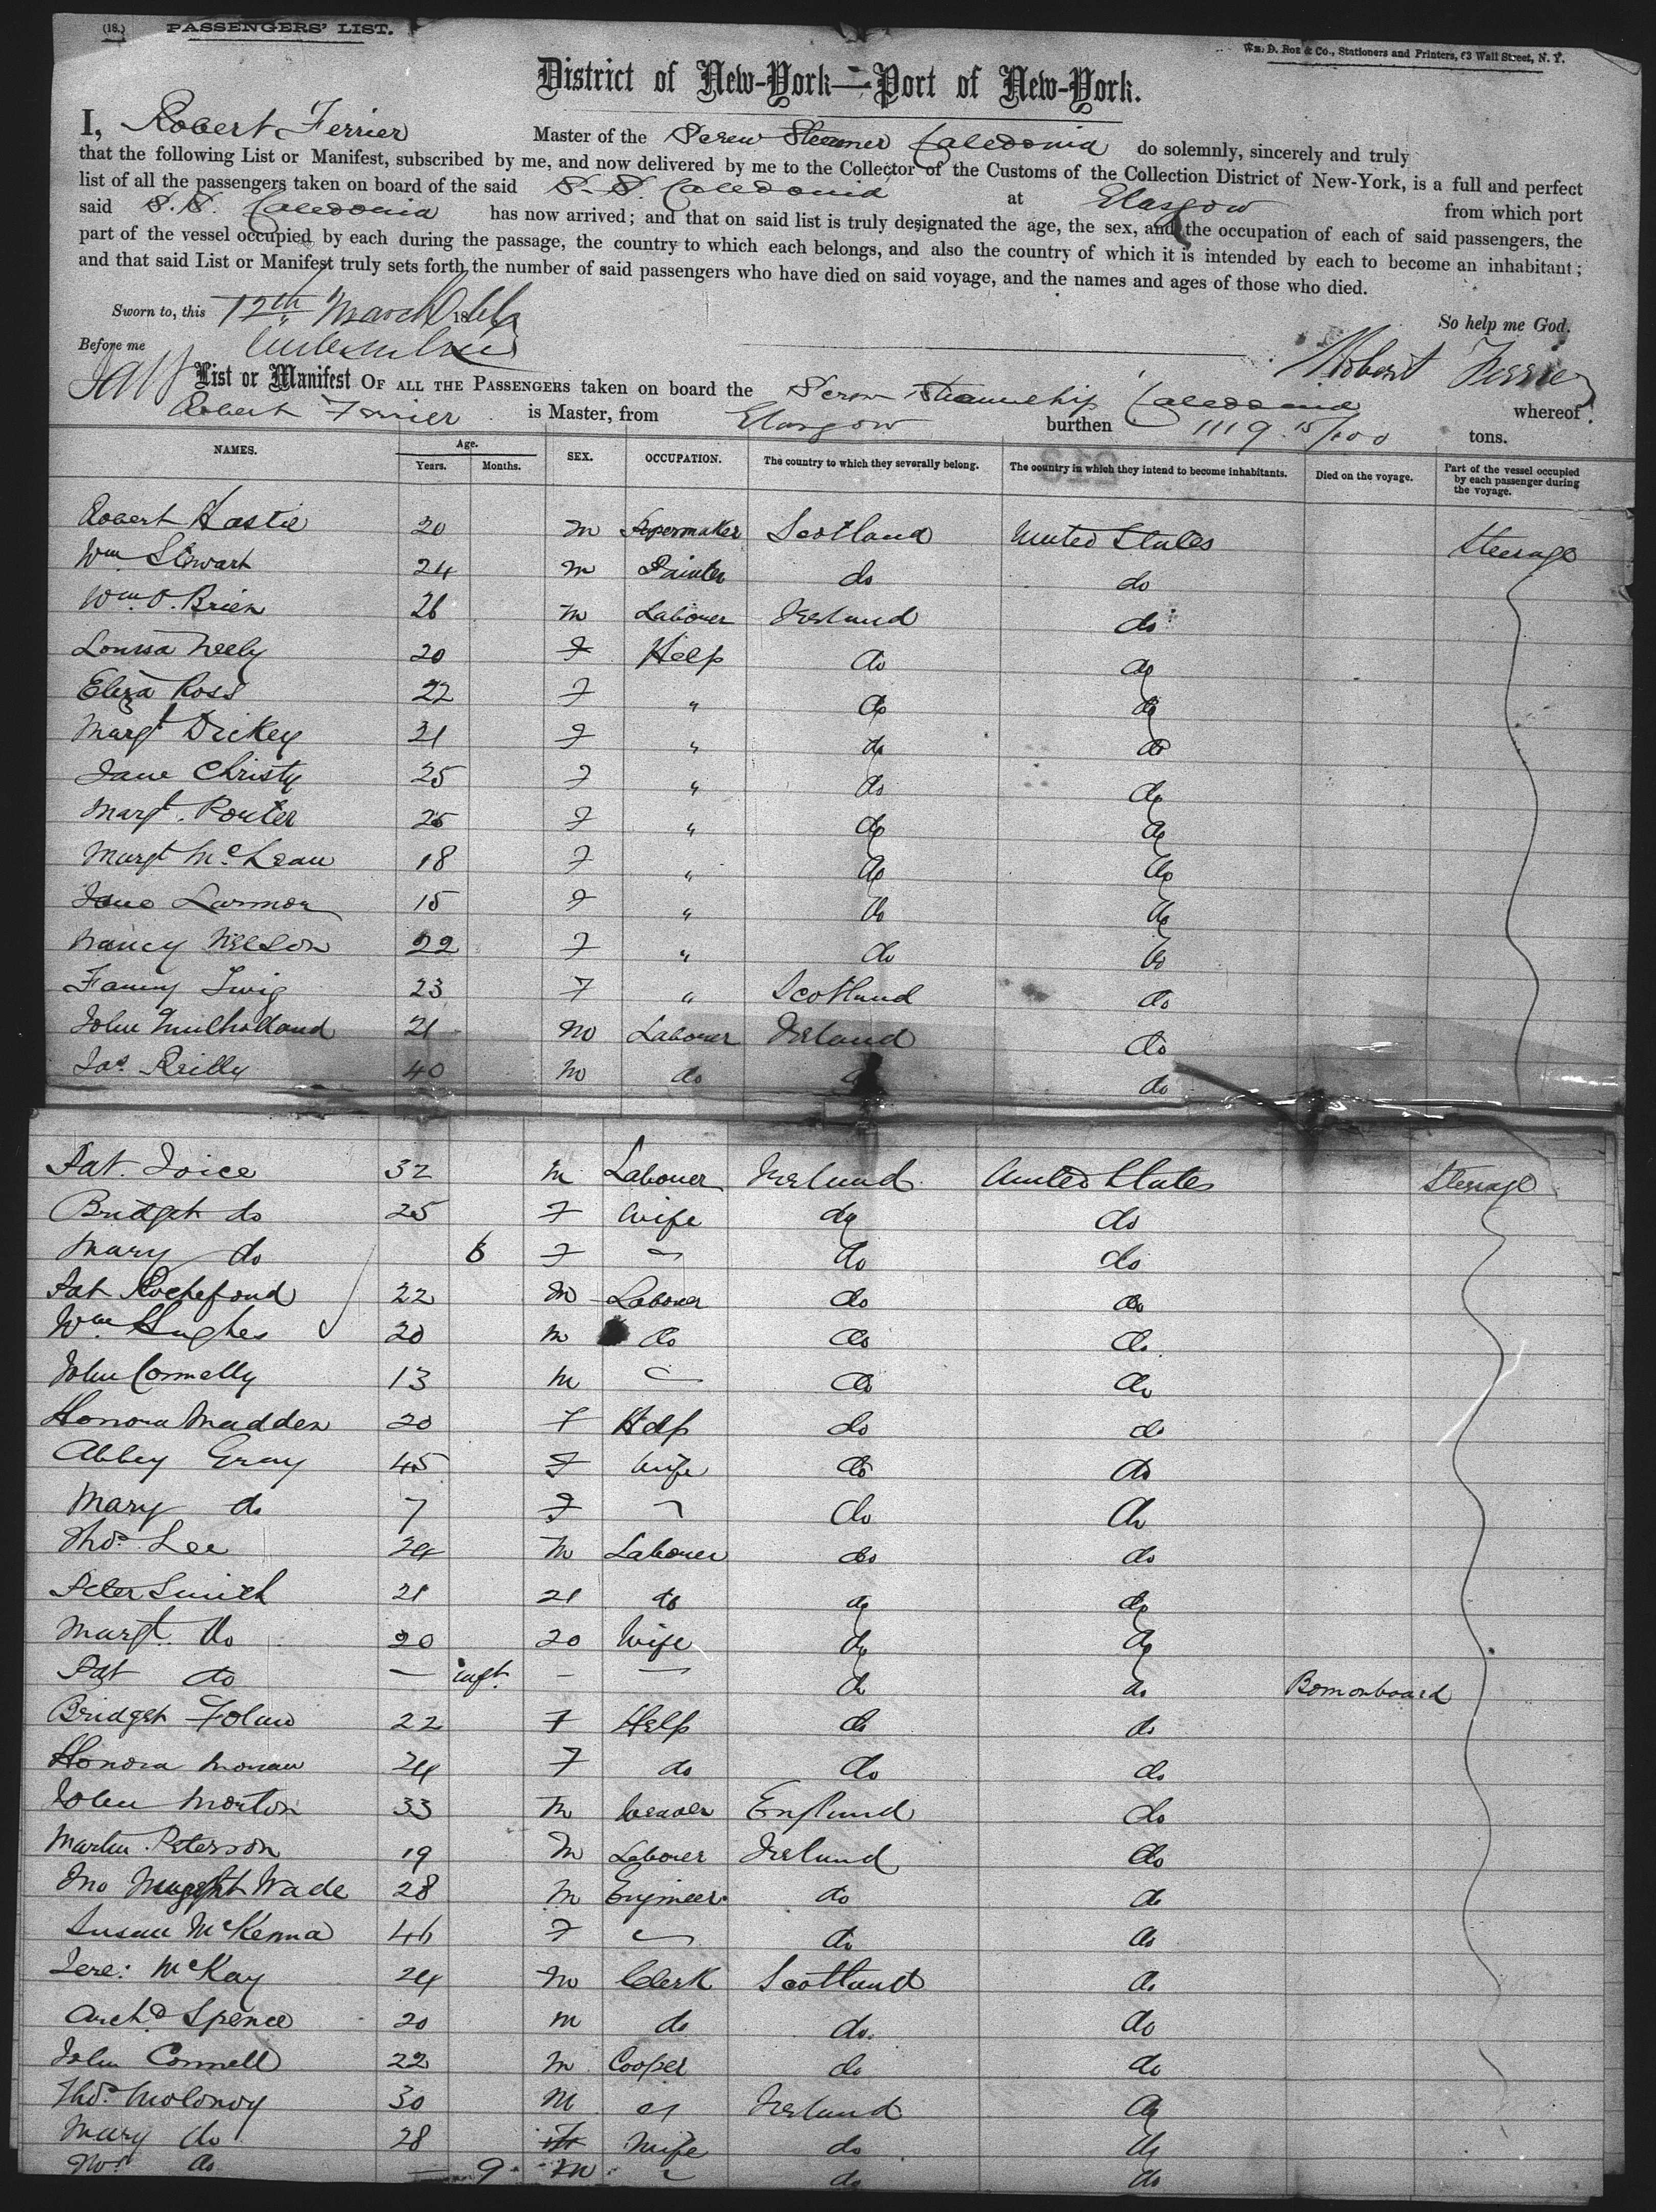 (18.) PASSENGERS' LIST.
Wm. D. Roe & Co., Stationers and Printers, 63 Wall Street, N. Y.
District of New-York—Port of New-York.
I, Robert Ferrier Master of the Screw Steamer Caledonia do solemnly, sincerely and truly
that the following List or Manifest, subscribed by me, and now delivered by me to the Collector of the Customs of the Collection District of New-York, is a full and perfect
list of all the passengers taken on board of the said S.S. Caledonia at Glasgow from which port
said S.S. Caledonia has now arrived; and that on said list is truly designated the age, the sex, and the occupation of each of said passengers, the
part of the vessel occupied by each during the passage, the country to which each belongs, and also the country of which it is intended by each to become an inhabitant;
and that said List or Manifest truly sets forth the number of said passengers who have died on said voyage, and the names and ages of those who died.
Sworn to, this 12th March 1866 So help me God.
Before me Robert Ferrier
List or Manifest OF ALL THE PASSENGERS taken on board the Screw Steamship Caledonia whereof
Robert Ferrier is Master, from Glasgow burthen 1119 15/100 tons.
NAMES. Age. Years. Months. SEX. OCCUPATION. The country to which they severally belong. The country in which they intend to become inhabitants. Died on the voyage. Part of the vessel occupied by each passenger during the voyage.
Robert Hastie 20 M Papermaker Scotland United States Steerage
Wm Stewart 24 M Painter do do
Wm O. Brien 26 M Labourer Ireland do
Louisa Neely 20 F Help do do
Eliza Ross 22 F " do do
Margt Dickey 21 F " do do
Jane Christy 25 F " do do
Margt. Porter 25 F " do do
Margt McLean 18 F " do do
Jane Larmor 15 F " do do
Nancy Nelson 22 F " do do
Fanny 23 F " Scotland do
John Mulholland 21 M Labourer Ireland do
Jas Reilly 40 M do do
Pat. Joice 32 M Labourer Ireland United States Steerage
Bridget do 25 F Wife do do
Mary do 6 F " do do
Pat Rochford 22 M Labourer do do
Wm Hughes 20 M do do do
John Connelly 13 M " do do
Honora Madden 20 F Help do do
Abbey Gray 45 F Wife do do
Mary do 7 F " do do
Thos Lee 24 M Labourer do do
Peter Smith 21 21 do do do
Margt. do 20 20 Wife do do
Pat do — inft. — — do do Born on board
Bridget Folan 22 F Help do do
Honora Moran 24 F do do do
John Morton 33 M Weaver England do
Martin Peterson 19 M Labourer Ireland do
Jno Wade 28 M Engineer do do
Susan McKenna 46 F " do do
Jere: McKay 24 M Clerk Scotland do
Archd Spence 20 M do do do
John Connell 22 M Cooper do do
Thos. Molonoy 30 M Ireland do
Mary do 28 F Wife do do
do — 9 M " do do